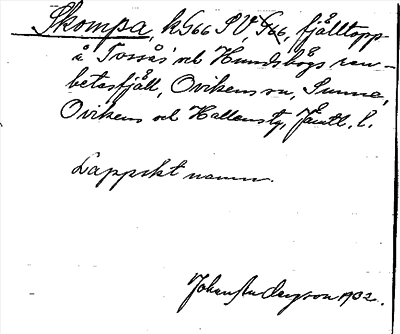 Skompa, k G66 SV G66, fjälltopp
å Tossås' och Hundshögs ren-
betesfjäll, Ovikens sn, Sunne,
Ovikens och Hallens tg, Jämtl. l.
Lappskt namn.
Johan Andersson 1932.